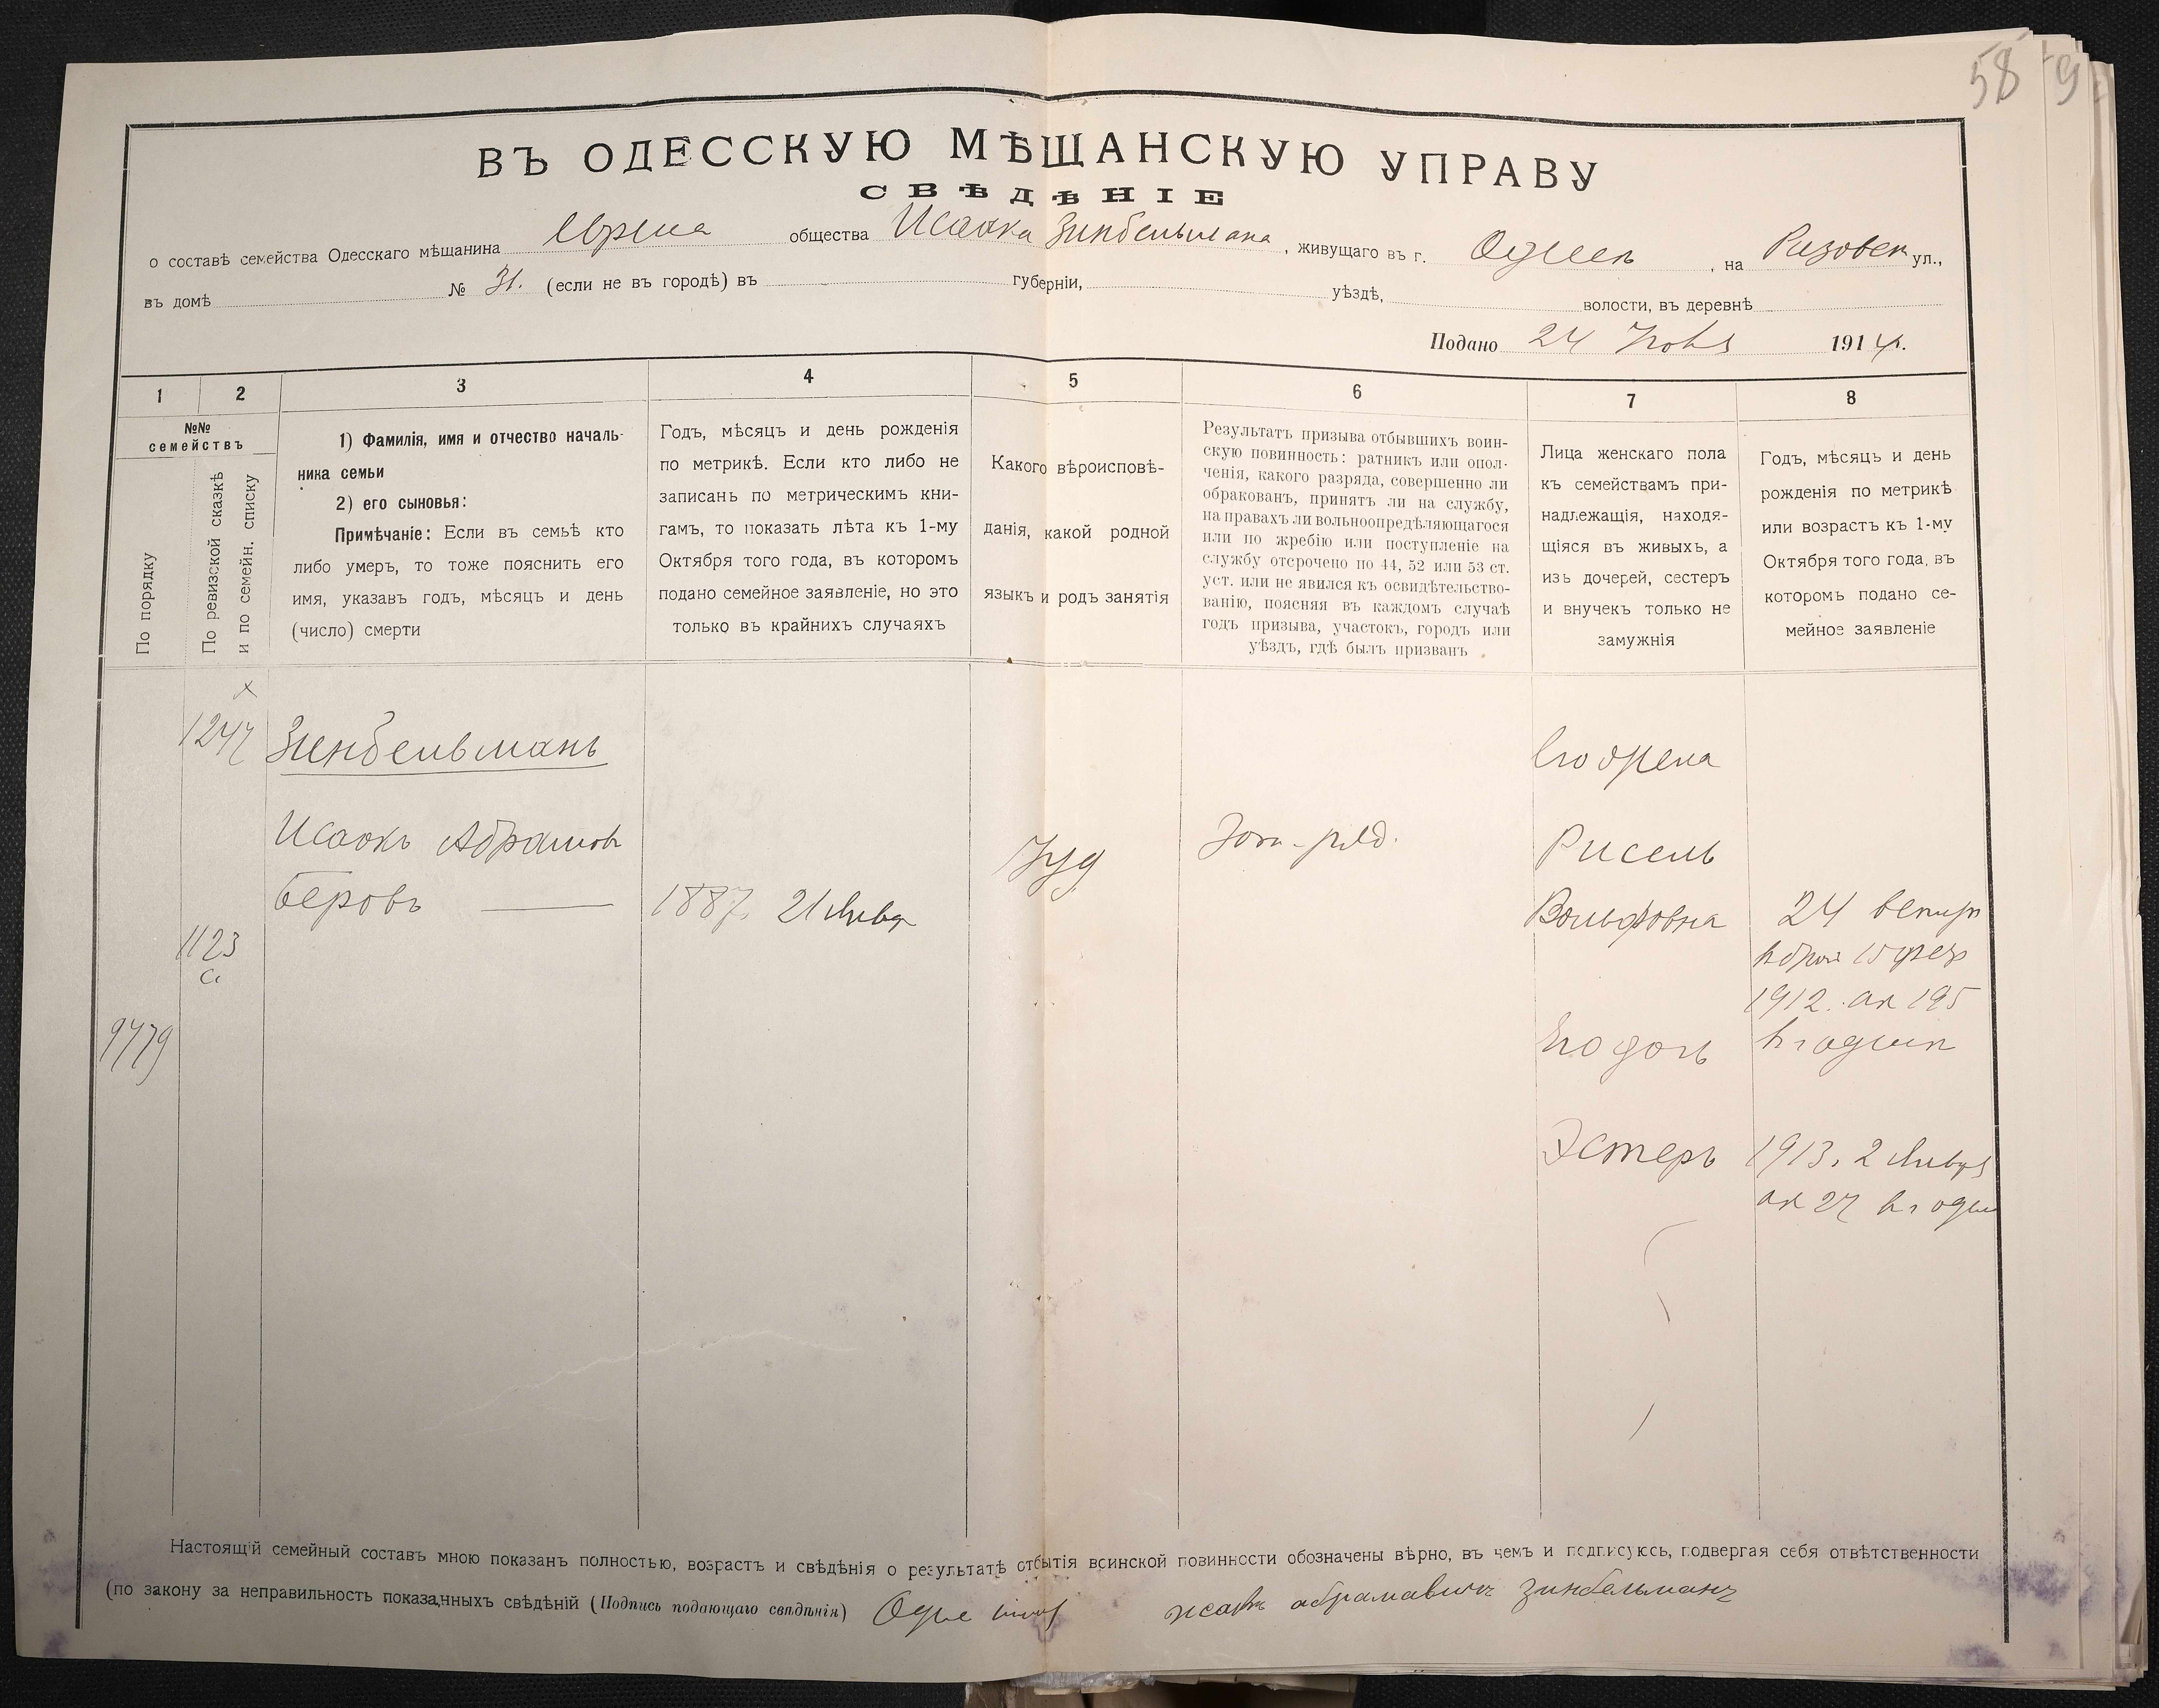 58
9
ВЪ ОДЕССКУЮ МѢЩАНСКУЮ УПРАВУ
СВѢДѢНІЕ
о составѣ семейства Одесскаго мѣщанина общества Исаока Зинбельмана, живущаго въ г. Одессѣ, на Ризовск ул.,
въ домѣ № 31. (если не въ городѣ) въ губерніи, уѣздѣ, волости, въ деревнѣ
Подано 24 1914 г.
1 2 3 4 5 6 7 8
№№
семействъ
По порядку
По ревизской сказкѣ
и по семейн. списку
1) Фамилія, имя и отчество началь-
ника семьи
2) его сыновья:
Примѣчаніе: Если въ семьѣ кто
либо умеръ, то тоже пояснить его
имя, указавъ годъ, мѣсяцъ и день
(число) смерти
Годъ, мѣсяцъ и день рожденія
по метрикѣ. Если кто либо не
записанъ по метрическимъ кни-
гамъ, то показать лѣта къ 1-му
Октября того года, въ которомъ
подано семейное заявленіе, но это
только въ крайнихъ случаяхъ
Какого вѣроисповѣ-
данія, какой родной
языкъ и родъ занятія
Результатъ призыва отбывшихъ воин-
скую повинность: ратникъ или опол-
ченія, какого разряда, совершенно ли
обракованъ, принятъ ли на службу,
на правахъ ли вольноопредѣляющагося
или по жребію или поступленіе на
службу отсрочено по 44, 52 или 53 ст.
уст. или не явился къ освидѣтельство-
ванію, поясняя въ каждомъ случаѣ
годъ призыва, участокъ, городъ или
уѣздъ, гдѣ былъ призванъ
Лица женскаго пола
къ семействамъ при-
надлежащія, находя-
щіяся въ живыхъ, а
изъ дочерей, сестеръ
и внучекъ только не
замужнія
Годъ, мѣсяцъ и день
рожденія по метрикѣ
или возрастъ къ 1-му
Октября того года, въ
которомъ подано се-
мейное заявленіе
х
1247 Зинбельманъ
Исаокъ Абрамов
Беровъ 1887. 21 Января
Іуд
Рисель
Вольфовна 24
15 фев
1123
с.
1912. ак 195
9779
Его дочь
Эстеръ 1913. 2 Января
ак 27
Настоящій семейный составъ мною показанъ полностью, возрастъ и свѣдѣнія о результатѣ отбытія воинской повинности обозначены вѣрно, въ чемъ и подписуюсь, подвергая себя отвѣтственности
(по закону за неправильность показанныхъ свѣдѣній (Подпись подающаго свѣдѣнія) исакъ абрамавичъ зинбельманъ